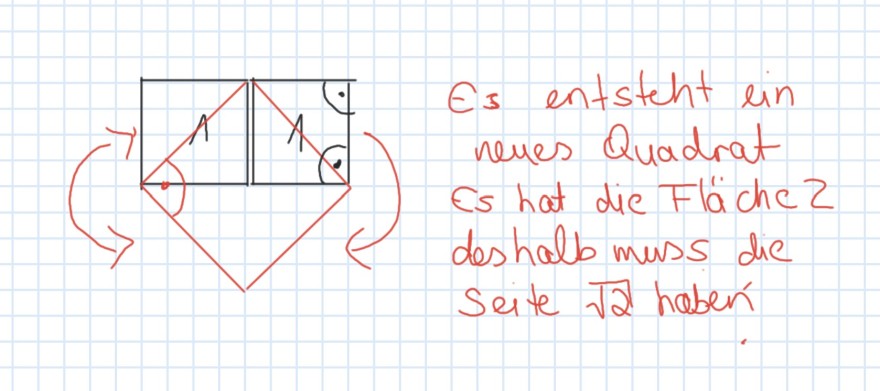 1 1
Es entsteht ein
neues Quadrat
Es hat die Fläche 2
deshalb muss die
Seite √2 haben